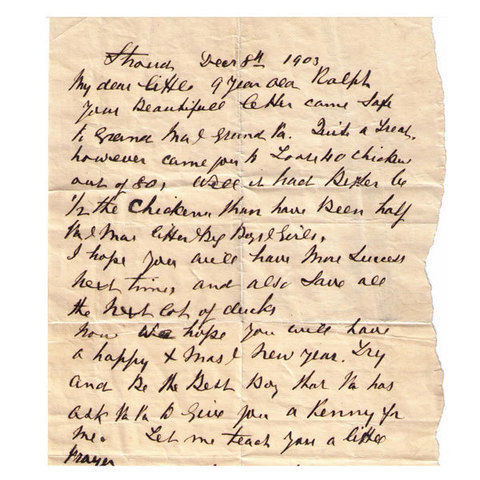 Stroud Decr 8th 1903
My dear little 9 year old Ralph
your Beautifull letter came Safe
to Grand Ma & Grand Pa. Quite a Treat,
however came you to Loose 40 chicken
out of 80, Well it had Better be
1/2 the Chickens than have Been half
Pa & Mas little & Big Boys & Girls,
I hope you will have More Success
Next time and also Save all
the Next lot of ducks
Now We hope you will have
a happy Xmas & New year. Try
And Be the Best Boy that Pa has
ask Pa Pa to Give you a Penny for
Me. Let me teach you a little
Prayer